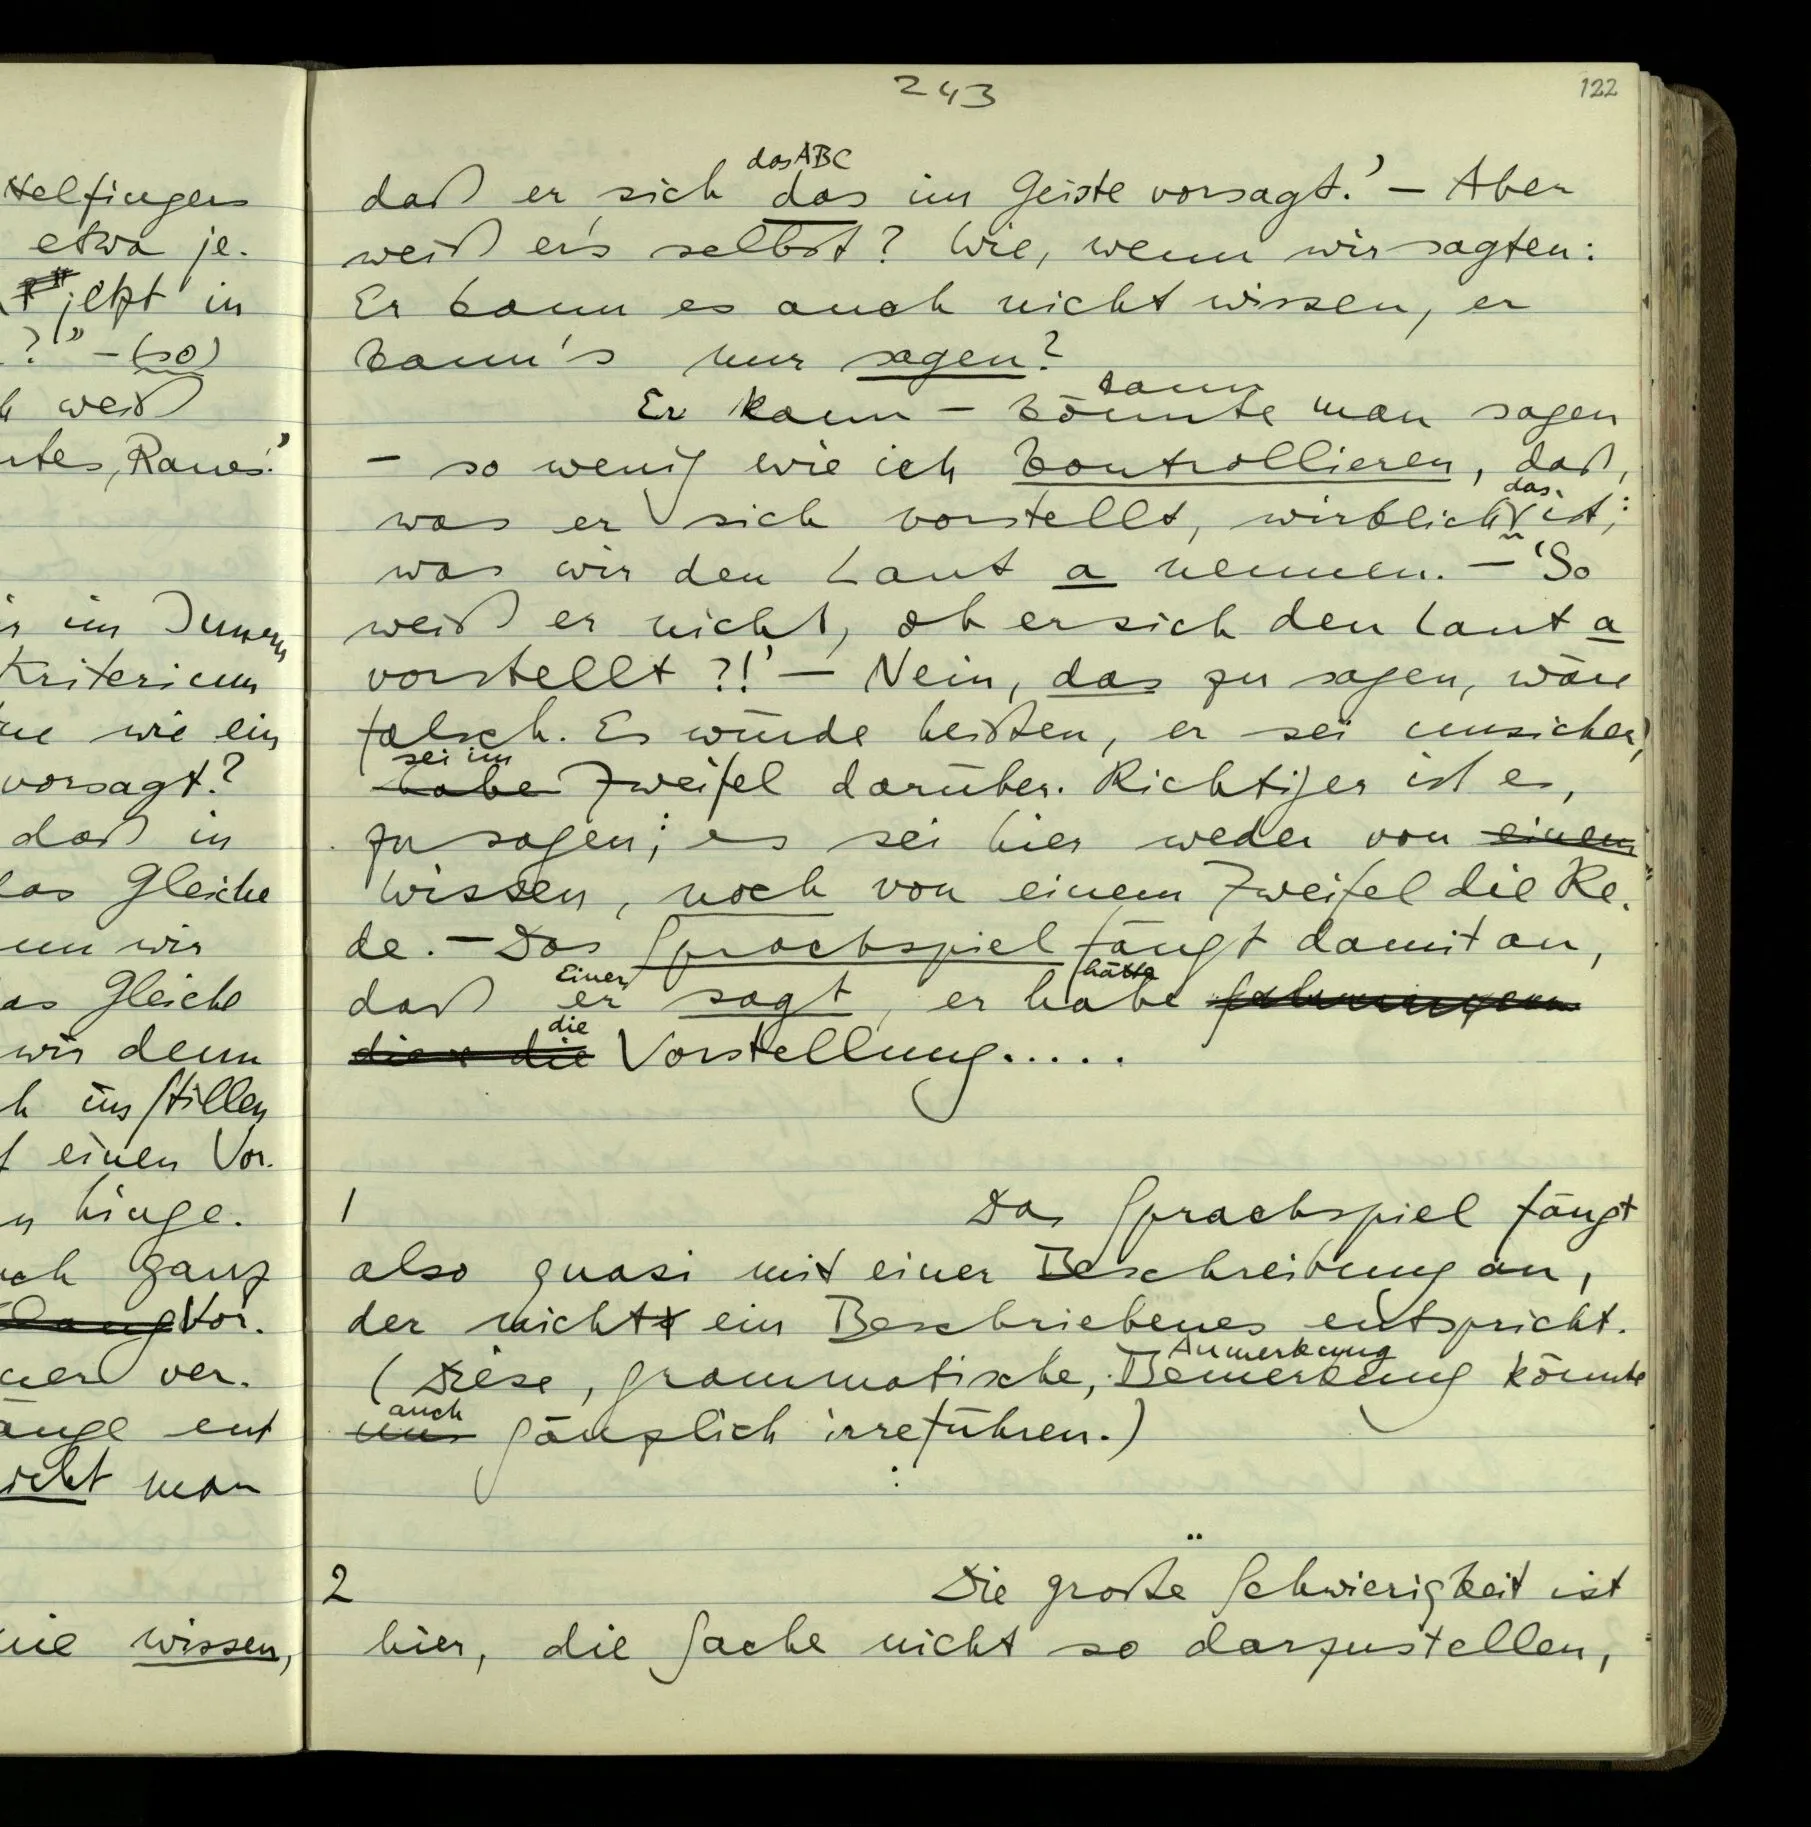 243
122
telfingers
etwa je-
"jetzt in
?" – (so)
weiß
Raues.'
im Innern
Kriterium
wie ein
vorsagt?
daß in
das Gleiche
wir
Gleiche
wir denn
im Stillen
einen Vor-
hinge.
ganz
Vor-
ver-
ent
man
wissen,
das ABC
daß er sich das im Geiste vorsagt.' – Aber
weiß er's selbst? Wie, wenn wir sagten:
Er kann es auch nicht wissen, er
kann's nur sagen?
kann
Er kann – könnte man sagen
– so wenig wie ich kontrollieren, daß,
das
was er sich vorstellt, wirklich ist,
was wir den Laut a nennen. – 'So
weiß er nicht, ob er sich den Laut a
vorstellt?!' – Nein, das zu sagen, wäre
falsch. Es würde heißen, er sei unsicher,
sei im
habe Zweifel darüber. Richtiger ist es,
zu sagen; es sei hier weder von einem
Wissen, noch von einem Zweifel die Re-
de. – Das Sprachspiel fängt damit an,
Einer hätte
daß er sagt, er habe
die
die Vorstellung.....
1 Das Sprachspiel fängt
also quasi mit einer Beschreibung an,
der nicht ein Beschriebenes entspricht.
Anmerkung
(Diese, grammatische, Bemerkung könnte
auch
uns gänzlich irreführen.)
2 Die große Schwierigkeit ist
hier, die Sache nicht so darzustellen,